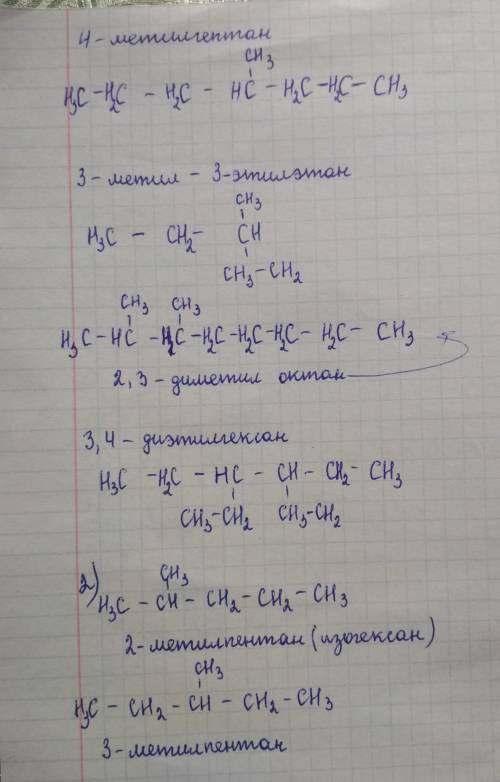 4-метилгептан
CH3
H3C - H2C - H2C - HC - H2C - H2C - CH3
3-метил - 3-этилэтан
CH3
H3C - CH2 - CH
CH3 - CH2
CH3 CH3
H3C - HC - HC - H2C - H2C - H2C - H2C - CH3
2,3 - диметил октан
3,4 - диэтилгексан
H3C - H2C - HC - CH - CH2 - CH3
CH3-CH2 CH3-CH2
2) CH3
H3C - CH - CH2 - CH2 - CH3
2-метилпентан (изогексан)
CH3
H3C - CH2 - CH - CH2 - CH3
3-метилпентан